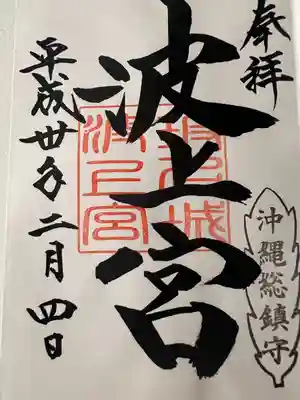 奉拝
沖縄総鎮守
波上宮
波上宮
平成卅年二月四日